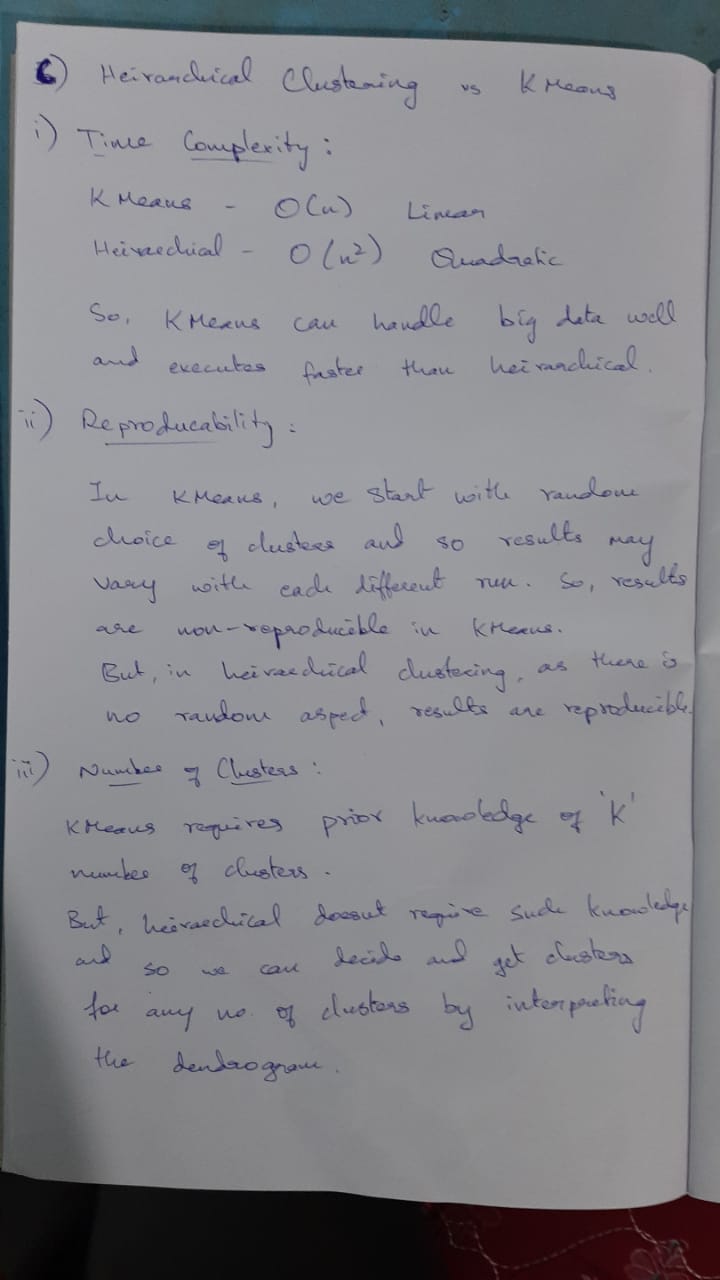 6) Heirarchical Clustering vs K Means
i) Time Complexity :
K Means - O(n) Linear
Heirarchial - O(n²) Quadratic
So, K Means can handle big data well
and executes faster than heirarchical.
ii) Reproducability :
In K Means, we start with random
choice of clusters and so results may
vary with each different run. So, results
are non-reproducible in K Means.
But, in heirarchical clustering, as there is
no random aspect, results are reproducible.
iii) Number of Clusters :
K Means requires prior knowledge of 'K'
number of clusters.
But, heirarchical doesnt require such knowledge
and so we can decide and get clusters
for any no. of clusters by interpreting
the dendrogram.